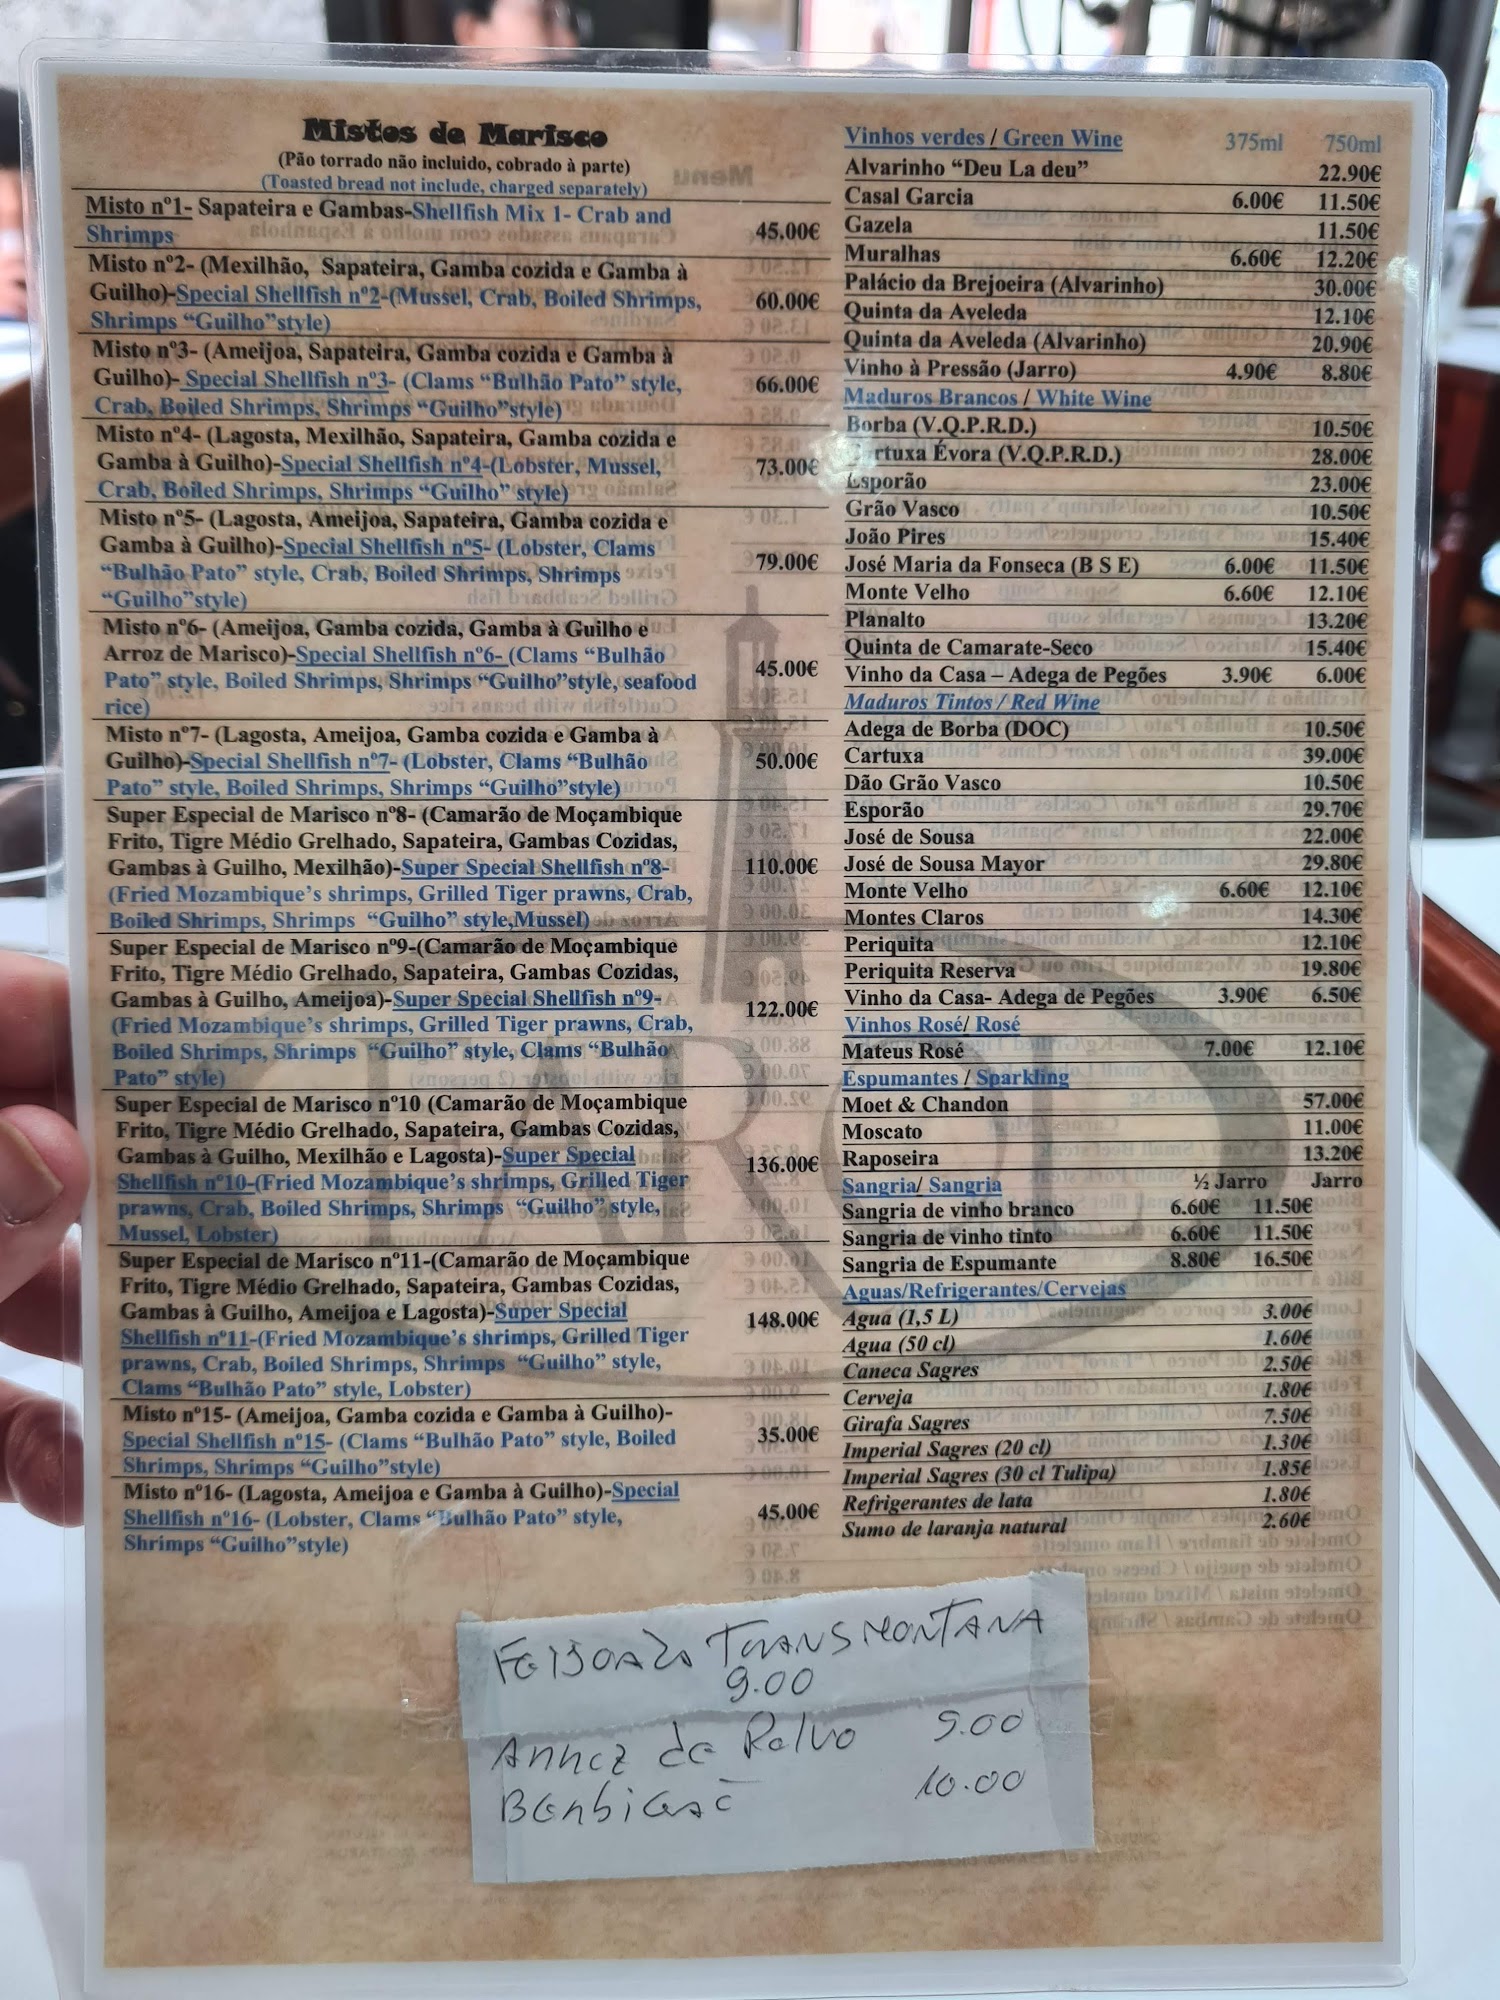 Mistos de Marisco
(Pão torrado não incluido, cobrado à parte)
(Toasted bread not include, charged separately)
Misto nº1- Sapateira e Gambas-Shellfish Mix 1- Crab and
Shrimps 45.00€
Misto nº2- (Mexilhão, Sapateira, Gamba cozida e Gamba à
Guilho)-Special Shellfish nº2-(Mussel, Crab, Boiled Shrimps, 60.00€
Shrimps “Guilho”style)
Misto nº3- (Ameijoa, Sapateira, Gamba cozida e Gamba à
Guilho)- Special Shellfish nº3- (Clams “Bulhão Pato” style, 66.00€
Crab, Boiled Shrimps, Shrimps “Guilho”style)
Misto nº4- (Lagosta, Mexilhão, Sapateira, Gamba cozida e
Gamba à Guilho)-Special Shellfish nº4-(Lobster, Mussel, 73.00€
Crab, Boiled Shrimps, Shrimps “Guilho” style)
Misto nº5- (Lagosta, Ameijoa, Sapateira, Gamba cozida e
Gamba à Guilho)-Special Shellfish nº5- (Lobster, Clams
“Bulhão Pato” style, Crab, Boiled Shrimps, Shrimps 79.00€
“Guilho”style)
Misto nº6- (Ameijoa, Gamba cozida, Gamba à Guilho e
Arroz de Marisco)-Special Shellfish nº6- (Clams “Bulhão 45.00€
Pato” style, Boiled Shrimps, Shrimps “Guilho”style, seafood
rice)
Misto nº7- (Lagosta, Ameijoa, Gamba cozida e Gamba à
Guilho)-Special Shellfish nº7- (Lobster, Clams “Bulhão 50.00€
Pato” style, Boiled Shrimps, Shrimps “Guilho”style)
Super Especial de Marisco nº8- (Camarão de Moçambique
Frito, Tigre Médio Grelhado, Sapateira, Gambas Cozidas,
Gambas à Guilho, Mexilhão)-Super Special Shellfish nº8- 110.00€
(Fried Mozambique’s shrimps, Grilled Tiger prawns, Crab,
Boiled Shrimps, Shrimps “Guilho” style,Mussel)
Super Especial de Marisco nº9-(Camarão de Moçambique
Frito, Tigre Médio Grelhado, Sapateira, Gambas Cozidas,
Gambas à Guilho, Ameijoa)-Super Special Shellfish nº9- 122.00€
(Fried Mozambique’s shrimps, Grilled Tiger prawns, Crab,
Boiled Shrimps, Shrimps “Guilho” style, Clams “Bulhão
Pato” style)
Super Especial de Marisco nº10 (Camarão de Moçambique
Frito, Tigre Médio Grelhado, Sapateira, Gambas Cozidas,
Gambas à Guilho, Mexilhão e Lagosta)-Super Special 136.00€
Shellfish nº10-(Fried Mozambique’s shrimps, Grilled Tiger
prawns, Crab, Boiled Shrimps, Shrimps “Guilho” style,
Mussel, Lobster)
Super Especial de Marisco nº11-(Camarão de Moçambique
Frito, Tigre Médio Grelhado, Sapateira, Gambas Cozidas,
Gambas à Guilho, Ameijoa e Lagosta)-Super Special 148.00€
Shellfish nº11-(Fried Mozambique’s shrimps, Grilled Tiger
prawns, Crab, Boiled Shrimps, Shrimps “Guilho” style,
Clams “Bulhão Pato” style, Lobster)
Misto nº15- (Ameijoa, Gamba cozida e Gamba à Guilho)-
Special Shellfish nº15- (Clams “Bulhão Pato” style, Boiled 35.00€
Shrimps, Shrimps “Guilho”style)
Misto nº16- (Lagosta, Ameijoa e Gamba à Guilho)-Special
Shellfish nº16- (Lobster, Clams “Bulhão Pato” style, 45.00€
Shrimps “Guilho”style)
Vinhos verdes / Green Wine 375ml 750ml
Alvarinho “Deu La deu” 22.90€
Casal Garcia 6.00€ 11.50€
Gazela 11.50€
Muralhas 6.60€ 12.20€
Palácio da Brejoeira (Alvarinho) 30.00€
Quinta da Aveleda 12.10€
Quinta da Aveleda (Alvarinho) 20.90€
Vinho à Pressão (Jarro) 4.90€ 8.80€
Maduros Brancos / White Wine
Borba (V.Q.P.R.D.) 10.50€
Cartuxa Évora (V.Q.P.R.D.) 28.00€
Esporão 23.00€
Grão Vasco 10.50€
João Pires 15.40€
José Maria da Fonseca (B S E) 6.00€ 11.50€
Monte Velho 6.60€ 12.10€
Planalto 13.20€
Quinta de Camarate-Seco 15.40€
Vinho da Casa – Adega de Pegões 3.90€ 6.00€
Maduros Tintos / Red Wine
Adega de Borba (DOC) 10.50€
Cartuxa 39.00€
Dão Grão Vasco 10.50€
Esporão 29.70€
José de Sousa 22.00€
José de Sousa Mayor 29.80€
Monte Velho 6.60€ 12.10€
Montes Claros 14.30€
Periquita 12.10€
Periquita Reserva 19.80€
Vinho da Casa- Adega de Pegões 3.90€ 6.50€
Vinhos Rosé/ Rosé
Mateus Rosé 7.00€ 12.10€
Espumantes / Sparkling
Moet & Chandon 57.00€
Moscato 11.00€
Raposeira 13.20€
Sangria/ Sangria ½ Jarro Jarro
Sangria de vinho branco 6.60€ 11.50€
Sangria de vinho tinto 6.60€ 11.50€
Sangria de Espumante 8.80€ 16.50€
Aguas/Refrigerantes/Cervejas
Agua (1,5 L) 3.00€
Agua (50 cl) 1.60€
Caneca Sagres 2.50€
Cerveja 1.80€
Girafa Sagres 7.50€
Imperial Sagres (20 cl) 1.30€
Imperial Sagres (30 cl Tulipa) 1.85€
Refrigerantes de lata 1.80€
Sumo de laranja natural 2.60€
FAROL
FEIJOADA TRANSMONTANA
9.00
ARROZ de Polvo 9.00
10.00